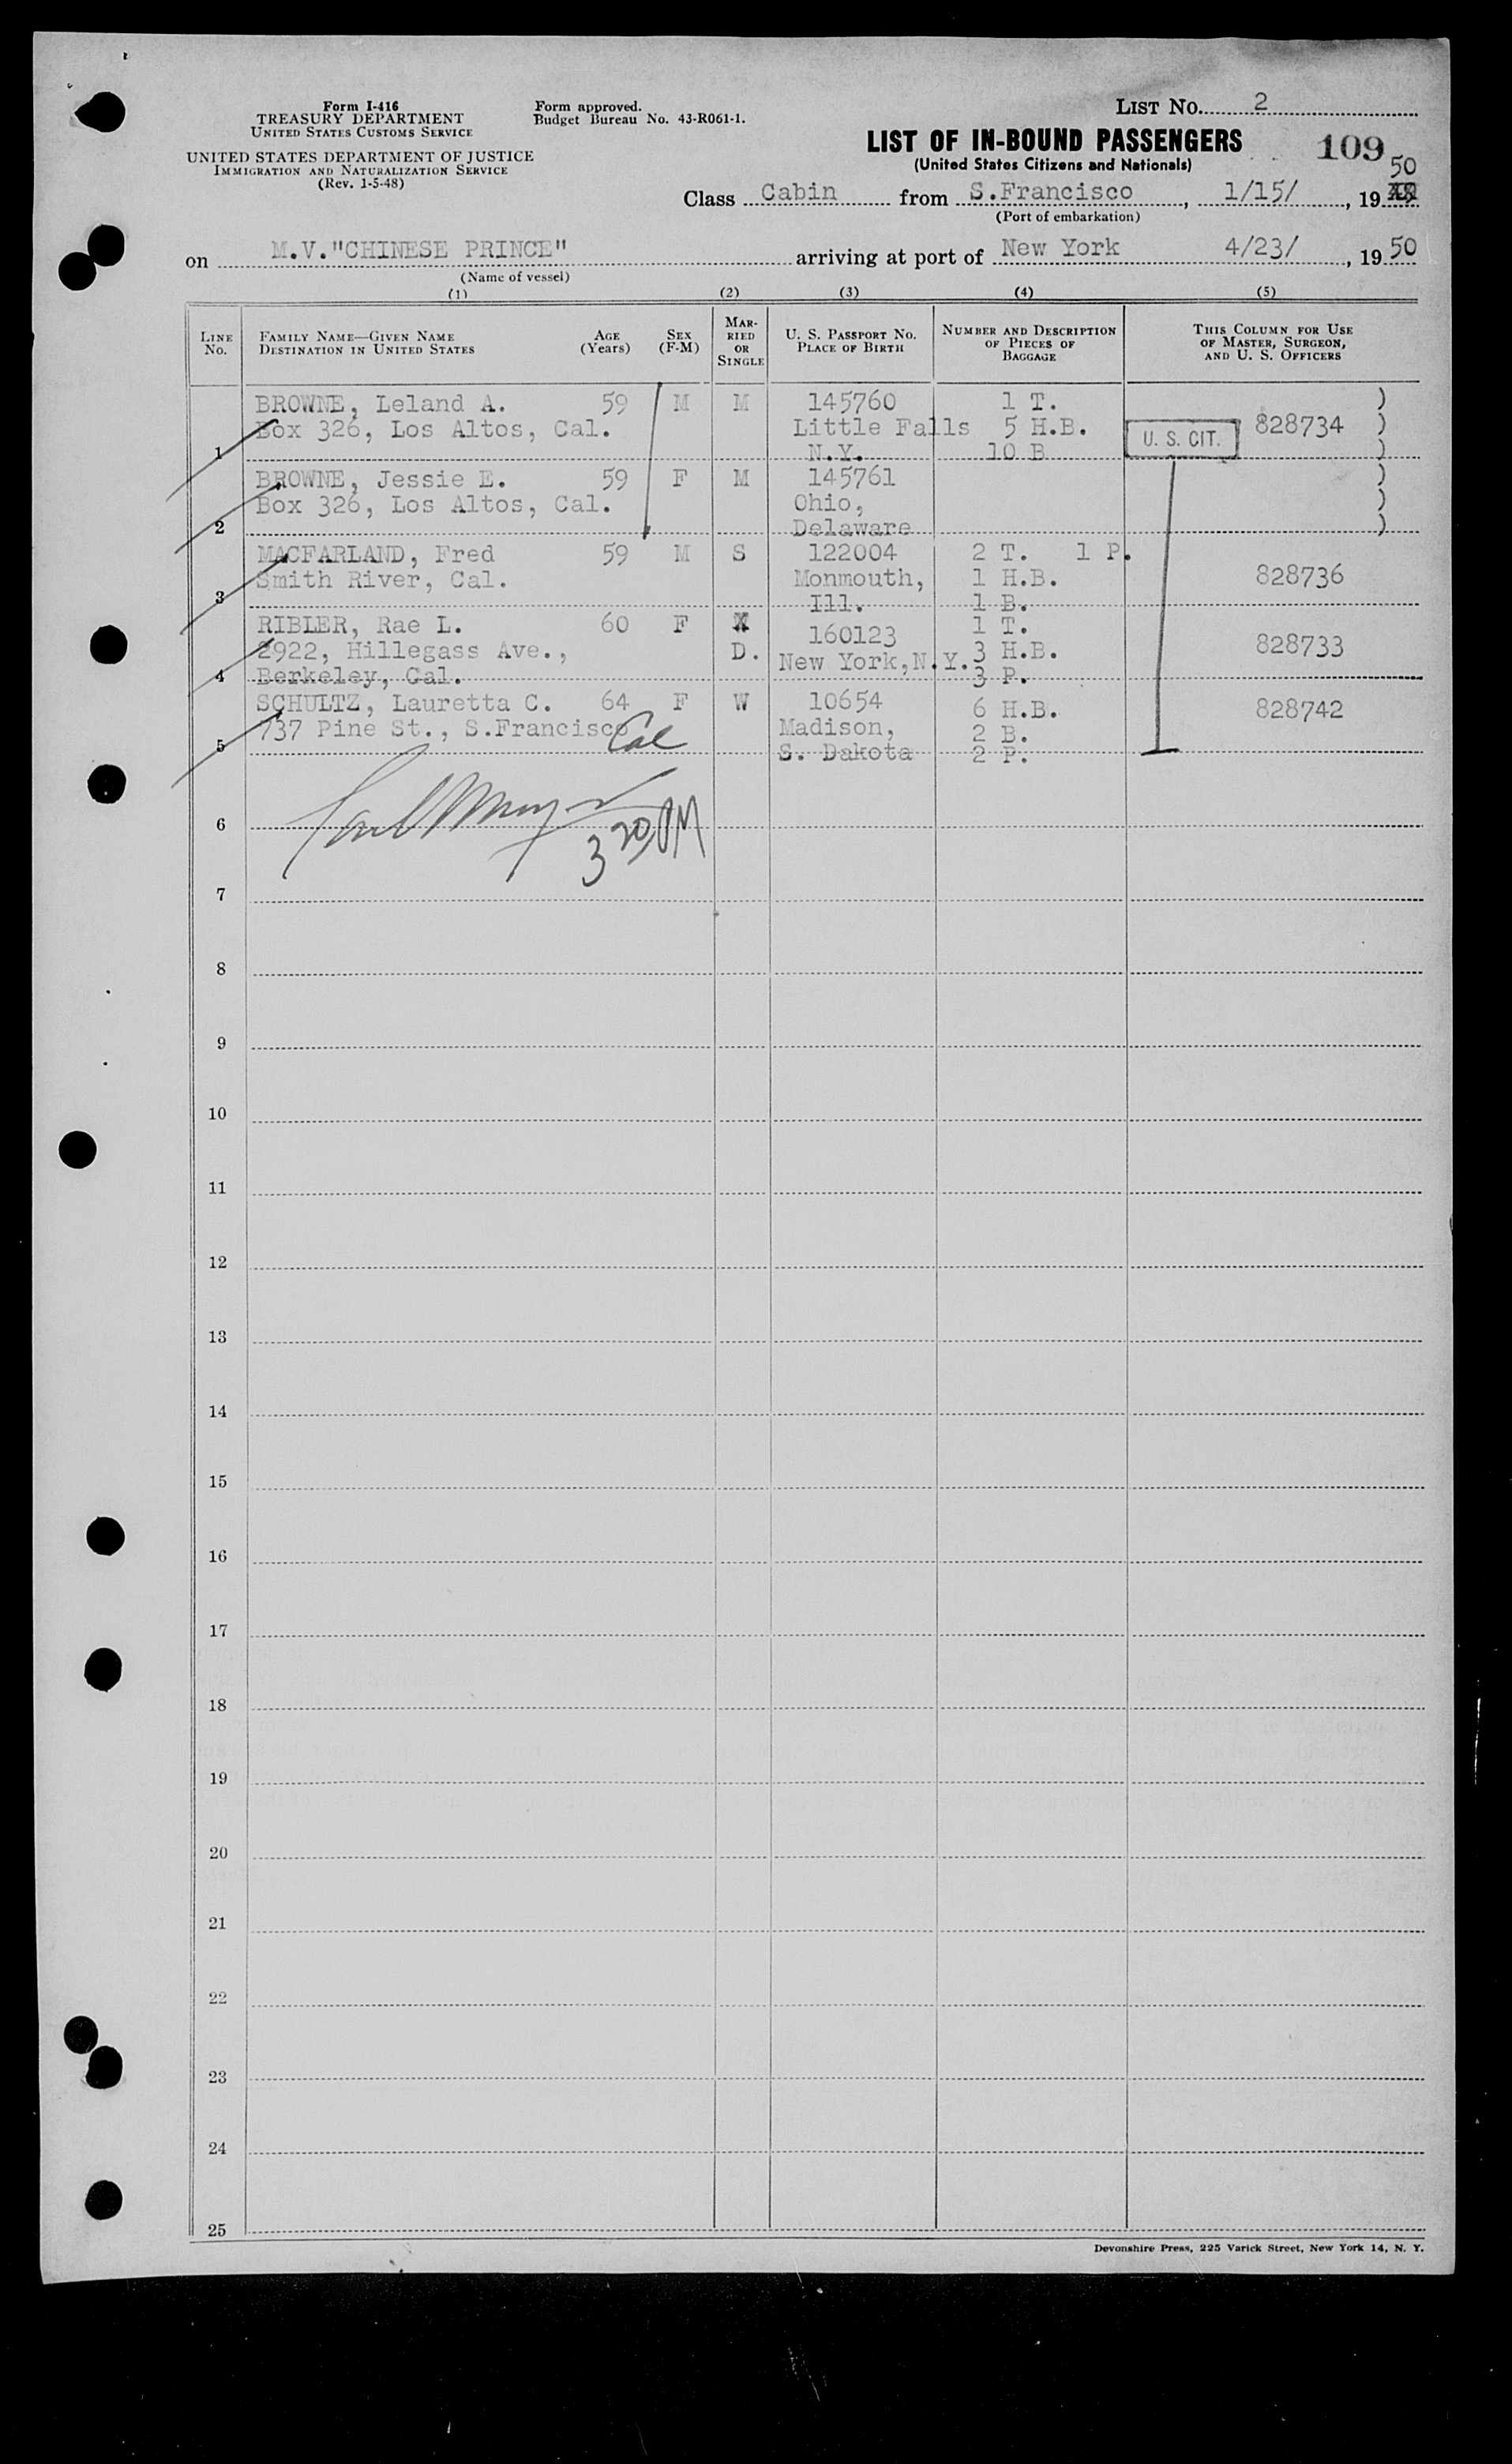 Form I-416
TREASURY DEPARTMENT
UNITED STATES CUSTOMS SERVICE
UNITED STATES DEPARTMENT OF JUSTICE
IMMIGRATION AND NATURALIZATION SERVICE
(Rev. 1-5-48)
Form approved.
Budget Bureau No. 43-R061-1.
LIST No. 2
LIST OF IN-BOUND PASSENGERS
109
(United States Citizens and Nationals)
Class Cabin from S.Francisco, 1/15/, 19 50
(Port of embarkation)
on M.V."CHINESE PRINCE" arriving at port of New York 4/23/, 19 50
(Name of vessel)
(1) (2) (3) (4) (5)
LINE No.
FAMILY NAME—GIVEN NAME
DESTINATION IN UNITED STATES
AGE (Years)
SEX (F-M)
MARRIED OR SINGLE
U. S. PASSPORT NO.
PLACE OF BIRTH
NUMBER AND DESCRIPTION
OF PIECES OF
BAGGAGE
THIS COLUMN FOR USE
OF MASTER, SURGEON,
AND U. S. OFFICERS
BROWNE, Leland A. 59 M M 145760 1 T. )
Box 326, Los Altos, Cal. Little Falls 5 H.B. U. S. CIT. 828734 )
1 N.Y. 10 B )
BROWNE, Jessie E. 59 F M 145761 )
Box 326, Los Altos, Cal. Ohio, )
2 Delaware )
MACFARLAND, Fred 59 M S 122004 2 T. 1 P.
Smith River, Cal. Monmouth, 1 H.B. 828736
3 Ill. 1 B.
RIBLER, Rae L. 60 F 160123 1 T.
2922, Hillegass Ave., D. New York,N.Y. 3 H.B. 828733
4 Berkeley, Cal. 3 P.
SCHULTZ, Lauretta C. 64 F W 10654 6 H.B. 828742
737 Pine St., S.Francisco Cal Madison, 2 B.
5 S. Dakota 2 P.
6
3 20 PM
7
8
9
10
11
12
13
14
15
16
17
18
19
20
21
22
23
24
25
Devonshire Press, 225 Varick Street, New York 14, N. Y.